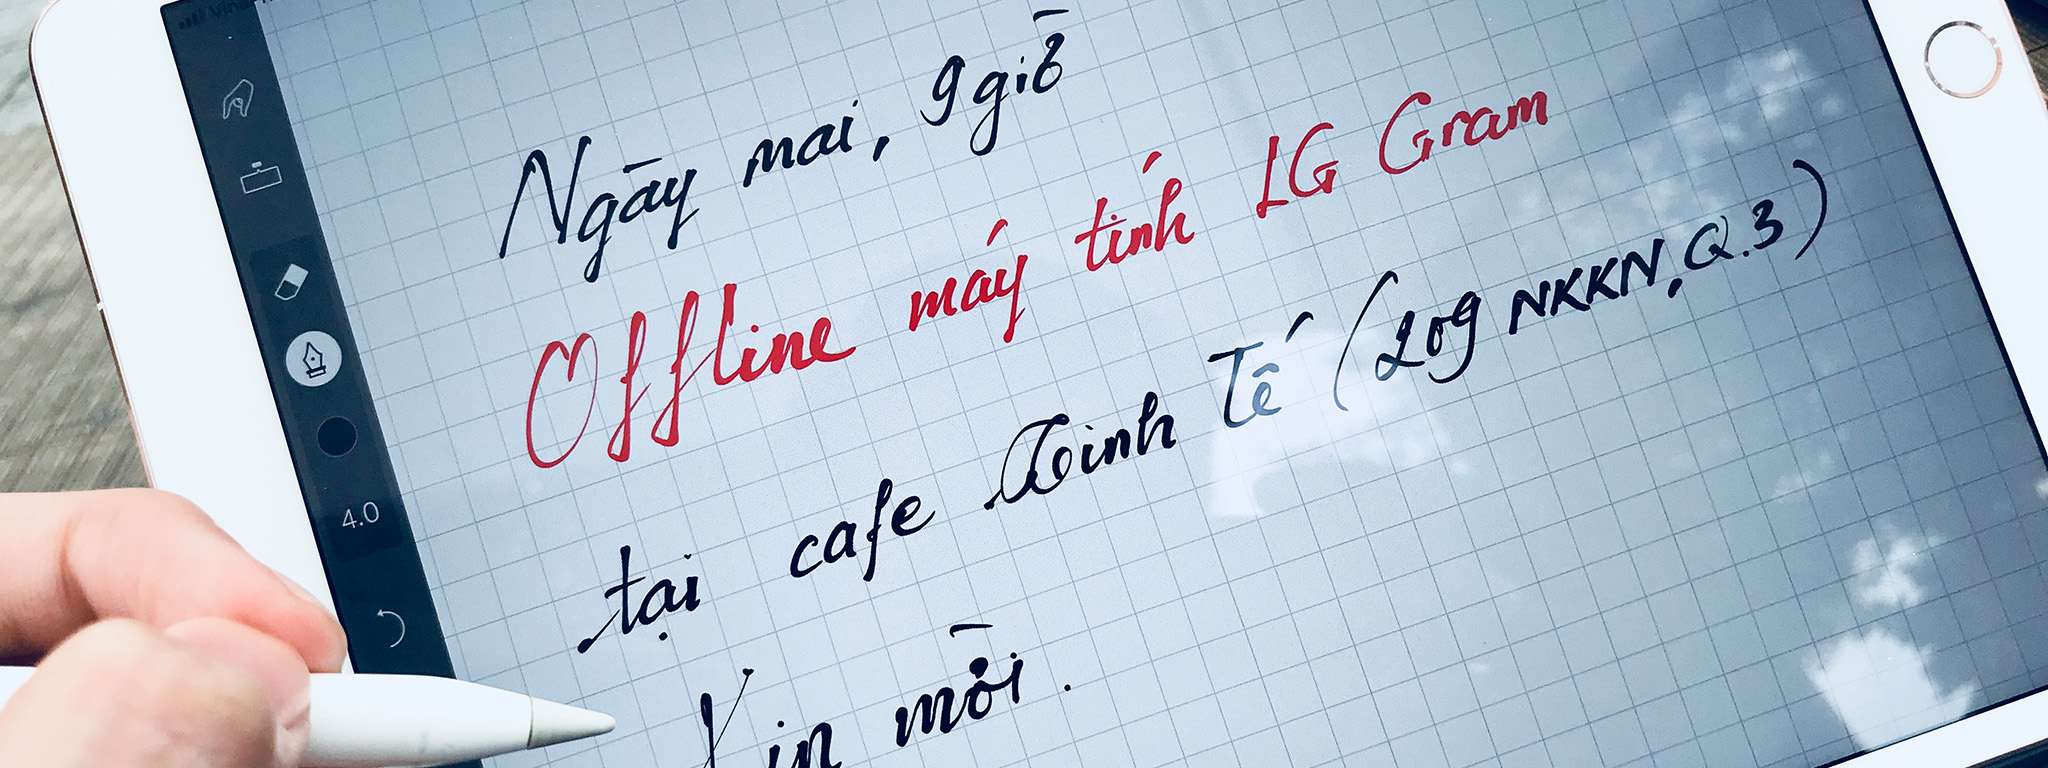 Ngày mai, 9 giờ
Offline máy tính LG Gram
tại cafe Tinh Tế (209 NKKN, Q.3)
Xin mời.
4.0